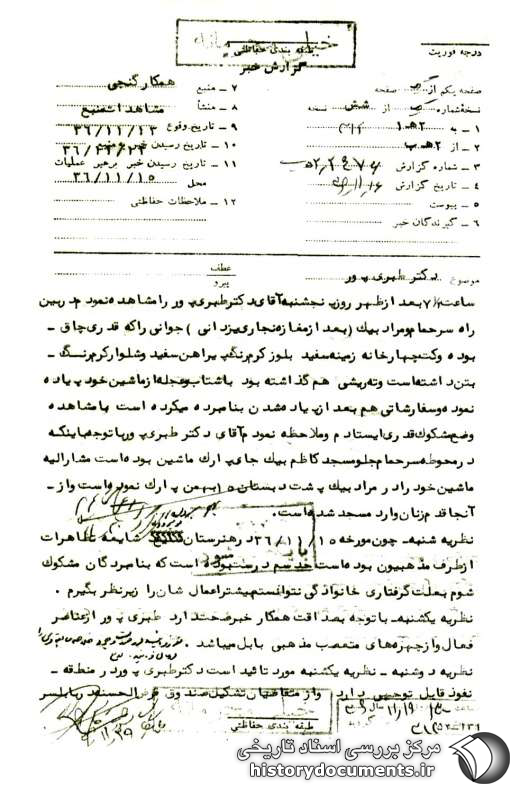 خیلی محرمانه
طبقه بندی حفاظتی
گزارش خبر
درجه فوریت
صفحه یکم از صفحه
نسخه شماره از شش نسخه
۱ - به ۲ هـ ۱
۲ - از ۲ هـ ب
۳ - شماره گزارش
۴ - تاریخ گزارش
۵ - پیوست
۶ - گیرندگان خبر
۷ - منبع همکار گنجی
۸ - منشأ مشاهدات منبع
۹ - تاریخ وقوع ۳۶/۱۱/۱۳
۱۰ - تاریخ رسیدن خبر به منبع
۱۱ - تاریخ رسیدن خبر برهبر عملیات ۳۶/۱۱/۱۵
محل
۱۲ - ملاحظات حفاظتی
موضوع دکتر طبری پور
عطف
پیرو
ساعت ۷ بعد از ظهر روز پنجشنبه آقای دکتر طبری پور را مشاهده نمودم در بین
راه سرحمام و مراد بیک (بعد از مغازه نجاری یزدانی) جوانی را که قدری چاق -
بوده وکت چهارخانه زمینه سفید بلوز کرم رنگ پیراهن سفید و شلوار کرم رنگ -
بتن داشته است و ته ریشی هم گذاشته بود باشتاب و عجله از ماشین خود پیاده
نموده و سفارشاتی هم بعد از پیاده شدن بنامبرده میکرده است با مشاهده
وضع مشکوک قدری ایستادم و ملاحظه نمودم آقای دکتر طبری پور با توجه باینکه
در محوطه سرحمام جلو مسجد کاظم بیک جای پارک ماشین بوده است مشارالیه
ماشین خود را در مراد بیک پشت دبستان ۱۵ بهمن پارک نموده است و از -
آنجا قدم زنان وارد مسجد شده است.
نظریه شنبه - چون مورخه ۳۶/۱۱/۱۵ در هنرستان شایعه تظاهرات
از طرف مذهبیون بوده است حدسم درست بوده است که بنامبردگان مشکوک
شوم بعلت گرفتاری خانوادگی نتوانستم بیشتر اعمال شان را زیر نظر بگیرم .
نظریه یکشنبه - با توجه بصداقت همکار خبر صحت دارد طبری پور از عناصر
فعال و از چهره های متعصب مذهبی بابل میباشد .
نظریه دوشنبه - نظریه یکشنبه مورد تائید است دکتر طبری پور در منطقه -
نفوذ قابل توجهی دارد و از متقاضیان تشکیل صندوق قرض الحسنه در بابلسر
طبقه بندی حفاظتی
مرکز بررسی اسناد تاریخی
historydocuments.ir